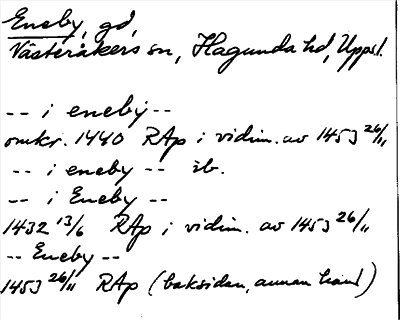 Eneby, gd,
Västeråkers sn, Hagunda hd, Uppsl.
-- i eneby --
omkr. 1440 RAp i vidim. av 1453 26/11
-- i eneby -- ib.
-- i Eneby --
1432 13/6 RAp i vidim. av 1453 26/11
-- Eneby --
1453 26/11 RAp (baksidan, annan hand)